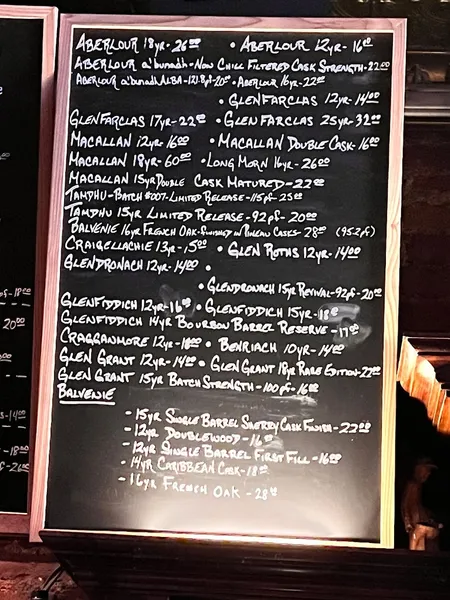 ABERLOUR 18yr-26⁰⁰ • ABERLOUR 12yr-16⁰⁰
ABERLOUR a'bunadh-NON CHILL FILTERED CASK STRENGTH-22⁰⁰
ABERLOUR a'bunadh ALBA-121.8pf-20⁰⁰ • ABERLOUR 16yr-22⁰⁰
• GLENFARCLAS 12yr-14⁰⁰
GLENFARCLAS 17yr-22⁰⁰ • GLENFARCLAS 25yr-32⁰⁰
MACALLAN 12yr-16⁰⁰ • MACALLAN DOUBLE CASK-16⁰⁰
MACALLAN 18yr-60⁰⁰ • LONG MORN 16yr-26⁰⁰
MACALLAN 15yr DOUBLE CASK MATURED-22⁰⁰
TAMDHU-BATCH #007-LIMITED RELEASE-115pf-25⁰⁰
TAMDHU 15yr LIMITED RELEASE-92pf-20⁰⁰
BALVENIE 16yr FRENCH OAK-FINISHED IN PINEAU CASKS-28⁰⁰ (95.2pf)
CRAIGELLACHIE 13yr-15⁰⁰ • GLEN ROTHS 12yr-14⁰⁰
GLENDRONACH 12yr-14⁰⁰ •
• GLENDRONACH 15yr REVIVAL-92pf-20⁰⁰
GLENFIDDICH 12yr-16⁰⁰ • GLENFIDDICH 15yr-18⁰⁰
GLENFIDDICH 14yr BOURBON BARREL RESERVE-17⁰⁰
CRAGGANMORE 12yr-18⁰⁰ • BENRIACH 10yr-14⁰⁰
GLEN GRANT 12yr-14⁰⁰ • GLEN GRANT 18yr RARE EDITION-22⁰⁰
GLEN GRANT 15yr BATCH STRENGTH-100pf-16⁰⁰
BALVENIE
-15yr SINGLE BARREL SHERRY CASK FINISH-22⁰⁰
-12yr DOUBLEWOOD-16⁰⁰
-12yr SINGLE BARREL FIRST FILL-16⁰⁰
-14yr CARIBBEAN CASK-18⁰⁰
-16yr FRENCH OAK-28⁰⁰